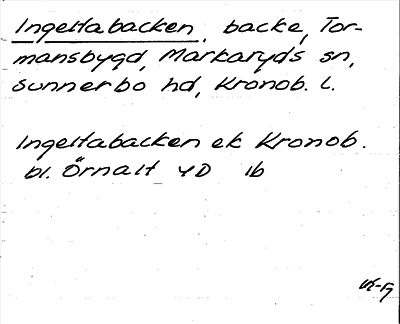 Ingeltabacken, backe, Tor-
mansbygd, Markaryds sn,
Sunnerbo hd, Kronob. l.
Ingeltabacken ek Kronob.
bl. Örnalt 4D 1b